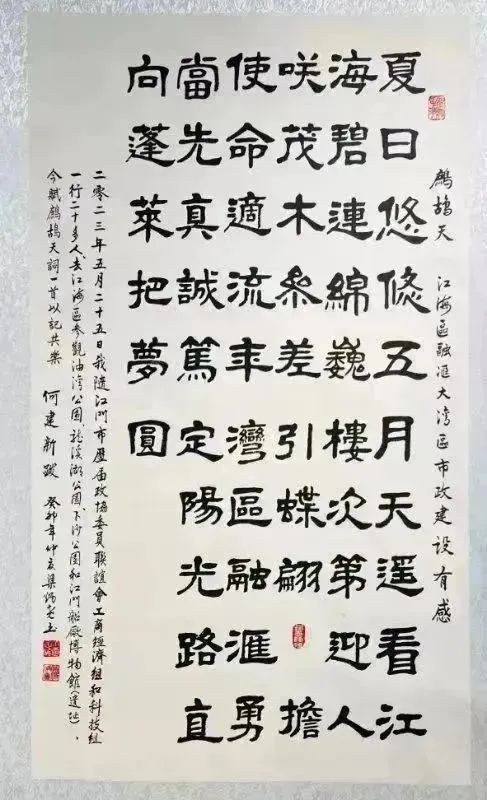 鷓鴣天 江海區融滙大灣區市政建設有感
夏日悠悠五月天遥看江
海碧連綿巍樓次第迎人
咲茂木叅差引蝶翩 擔
使命適流年灣區融滙勇
當先真誠篤定陽光路直
向蓬萊把夢圓
二零二三年五月二十五日我隨江門市歷届政協委員聯誼會工商經濟組和科技組
一行二十多人去江海區参觀油湾公園、龍溪湖公園、下沙公園和江門船厰博物館(遺址),
今賦鷓鴣天詞一首以記其樂 何建新跋 癸卯年仲夏梁